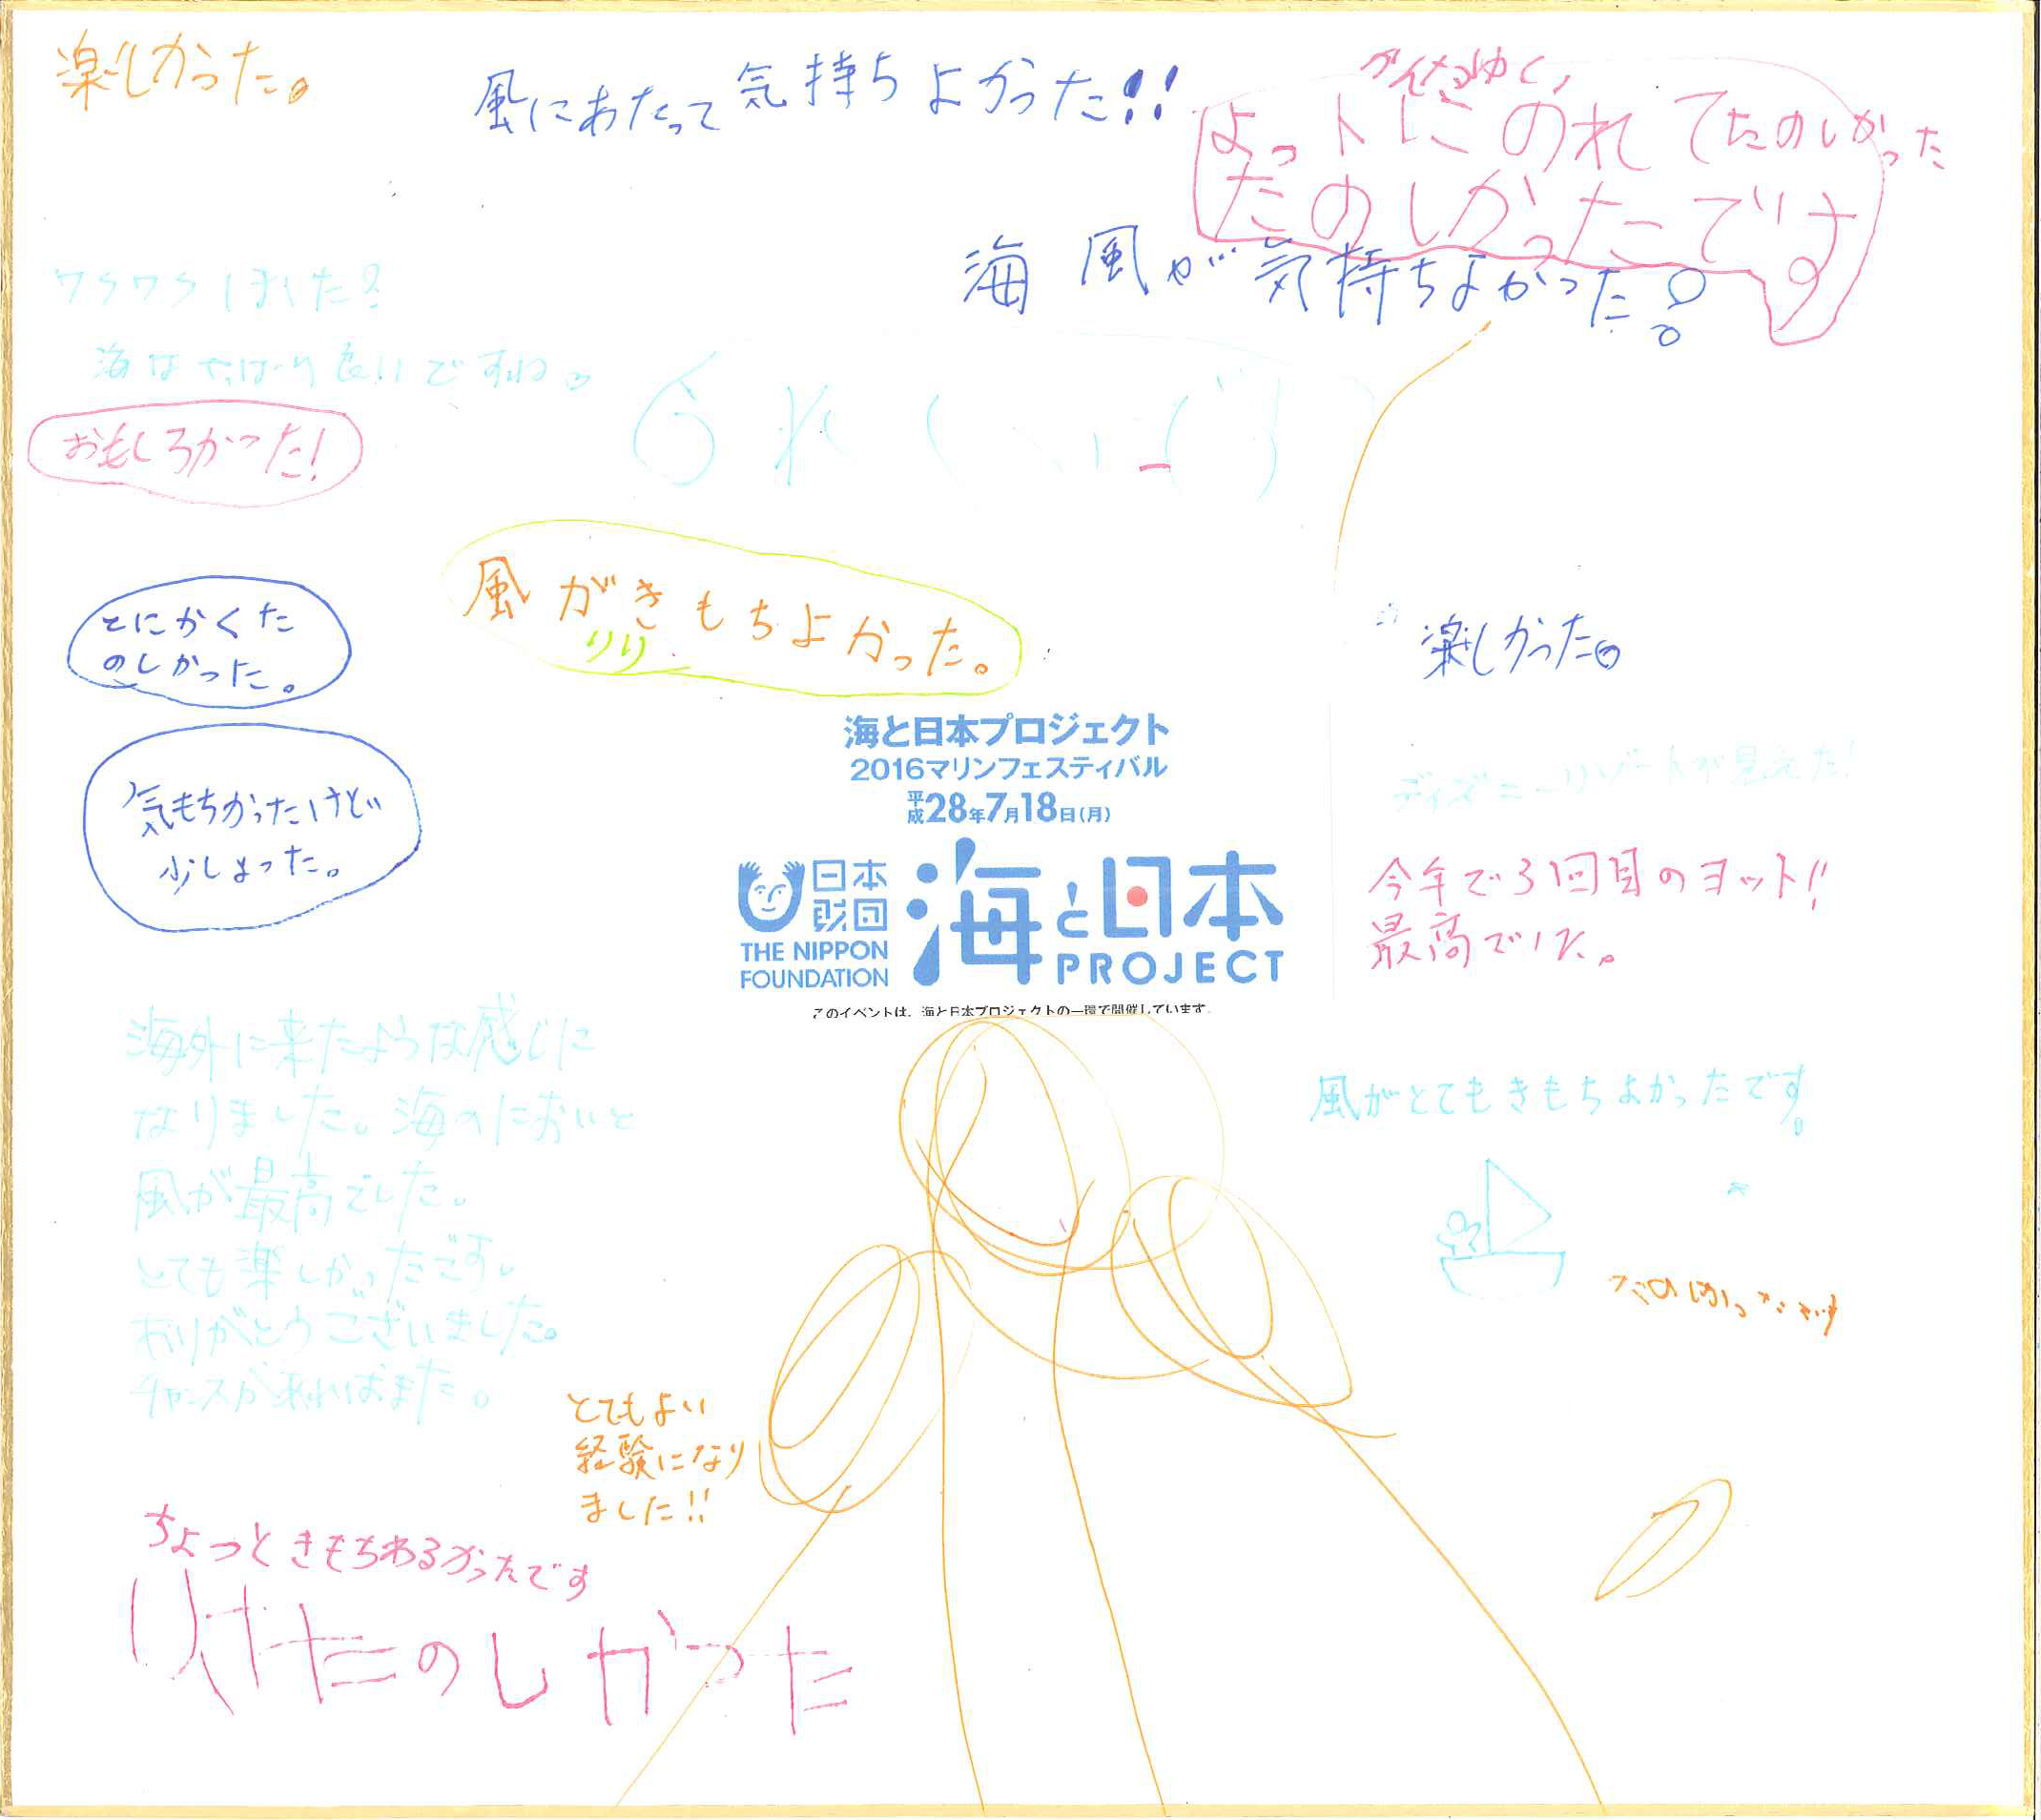 楽しかった。
風にあたって気持ちよかった!!
よっトにのれてたのしかった
たのしかったです
海風が気持ちよかった。
ワクワクしました
海はやっぱり良いですね。
おもしろかった!
風がきもちよかった。
りり
とにかくた
のしかった。
楽しかった。
気もちかったけど
少しよった。
海と日本プロジェクト
2016マリンフェスティバル
平成28年7月18日(月)
日本財団
THE NIPPON
FOUNDATION
海と日本
PROJECT
このイベントは、海と日本プロジェクトの一環で開催しています。
ディズニーリゾートが見えた!
今年で3回目のヨット!!
最高でした。
海外に来たような感じに
なりました。海のにおいと
風が最高でした。
とても楽しかったです。
ありがとうございました。
チャンスがあればまた。
風がとてもきもちよかったです。
とてもよい
経験になり
ました!!
ちょっときもちわるかったです
けたのしかった